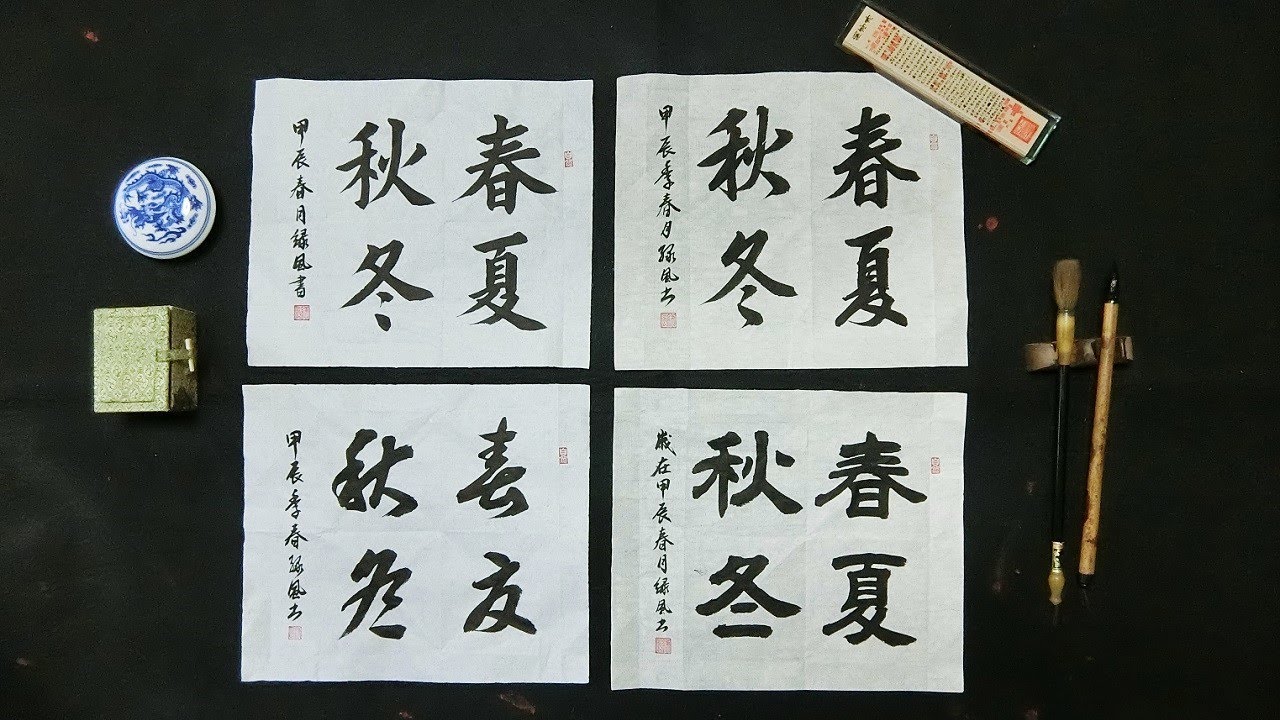 春夏
秋冬
甲辰春月緑風書
春夏
秋冬
甲辰季春月緑風书
春夏
秋冬
甲辰季春緑風书
春夏
秋冬
歲在甲辰春月緑風书